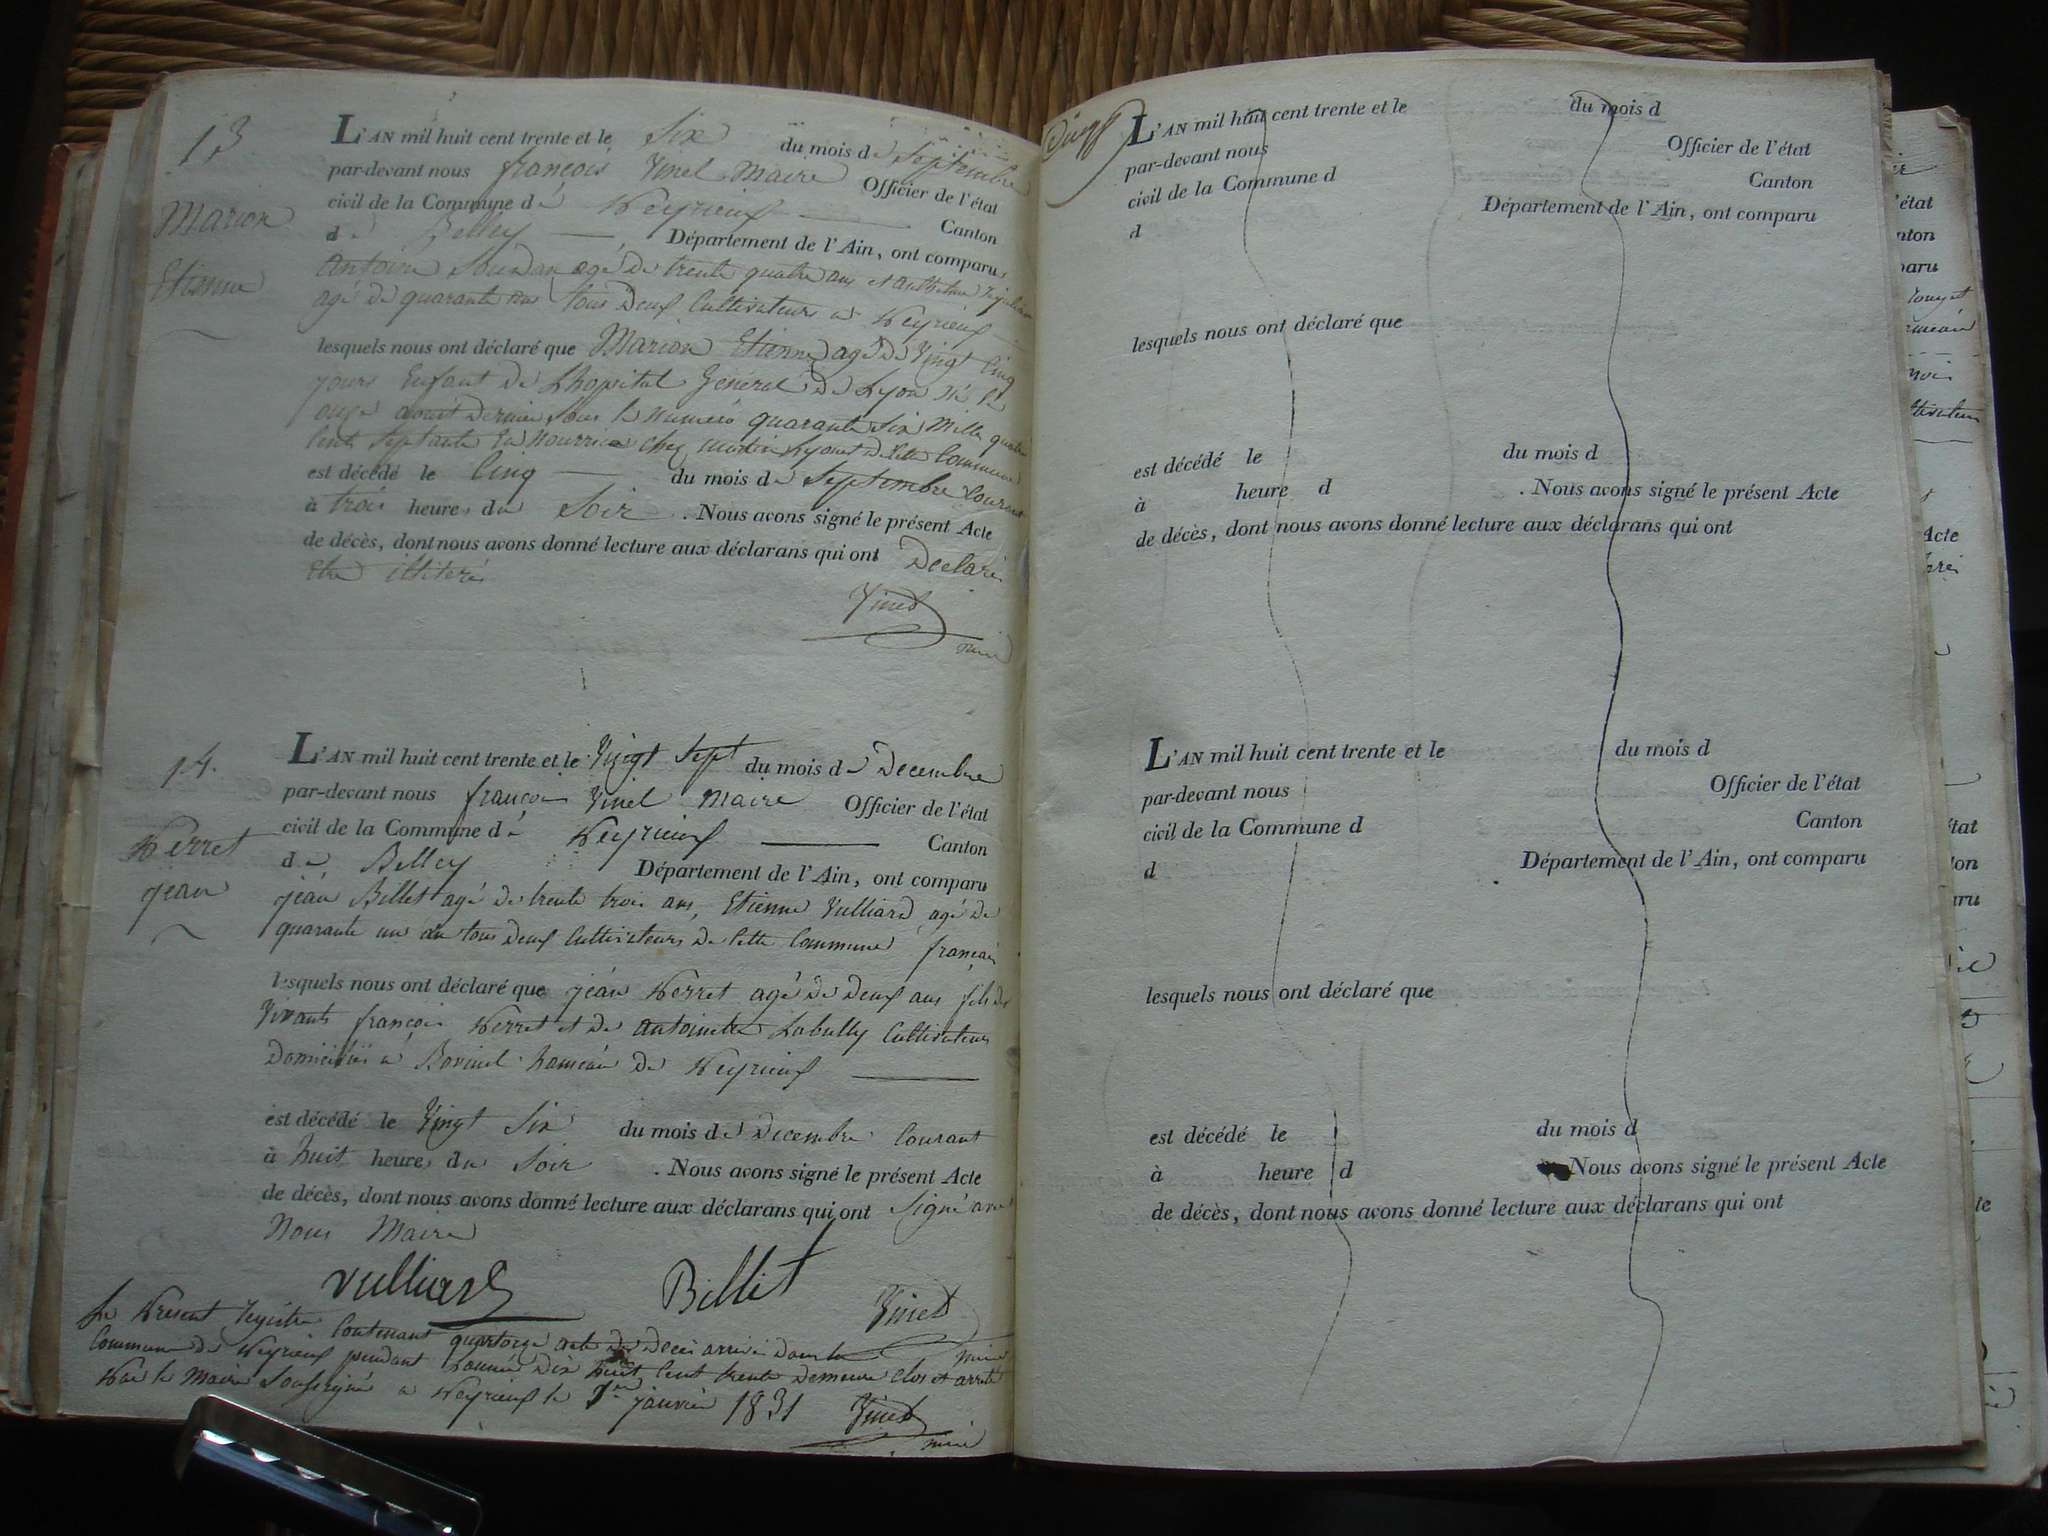 13
Marion
Etienne
L'AN mil huit cent trente et le Six du mois de Septembre
par-devant nous françois Vinet Maire Officier de l'état
civil de la Commune de Peyrieux Canton
de Belley Département de l'Ain, ont comparu
Antoine agé de trente quatre ans et
agé de quarante ans tous Deux Cultivateurs a Peyrieux
lesquels nous ont déclaré que Marion Etienne agé de Vingt Cinq
jours Enfant de Lhopital General de Lyon né le
onze aout dernier Sous le numero quarante Six Mille quatre
Cent Septante En nourrice chez de cette Commune
est décédé le Cinq du mois de Septembre Courant
à trois heures du Soir . Nous avons signé le présent Acte
de décès, dont nous avons donné lecture aux déclarans qui ont Declaré
Etre illiteré
Vinet
maire
14.
Perret
jean
L'AN mil huit cent trente et le Vingt Sept du mois de Decembre
par-devant nous françois Vinet Maire Officier de l'état
civil de la Commune de Peyrieux Canton
de Belley Département de l'Ain, ont comparu
jean Billet agé de trente trois ans, Etienne Vulliard agé de
quarante un an tous Deux Cultivateurs de Cette Commune français
lesquels nous ont déclaré que jean Perret agé de Deux ans fils de
Vivants françois Perret et de Antoinette Labully Cultivateurs
Domiciliés a hameau de Peyrieux
est décédé le Vingt Six du mois de Decembre Courant
à huit heures du Soir . Nous avons signé le présent Acte
de décès, dont nous avons donné lecture aux déclarans qui ont Signé avec
Nous Maire
Vulliard Billet Vinet
maire
Le Present Registre Contenant quatorze acte de Deces arrivés Dans la
Commune de Peyrieux pendant Lannée Dix huit Cent trente Demeure Clos et arreté
Par le Maire Soussigné a Peyrieux le 1er janvier 1831 Vinet
maire
L'AN mil huit cent trente et le du mois d
par-devant nous Officier de l'état
civil de la Commune d Canton
d Département de l'Ain, ont comparu
lesquels nous ont déclaré que
est décédé le du mois d
à heure d . Nous avons signé le présent Acte
de décès, dont nous avons donné lecture aux déclarans qui ont
L'AN mil huit cent trente et le du mois d
par-devant nous Officier de l'état
civil de la Commune d Canton
d Département de l'Ain, ont comparu
lesquels nous ont déclaré que
est décédé le du mois d
à heure d Nous avons signé le présent Acte
de décès, dont nous avons donné lecture aux déclarans qui ont